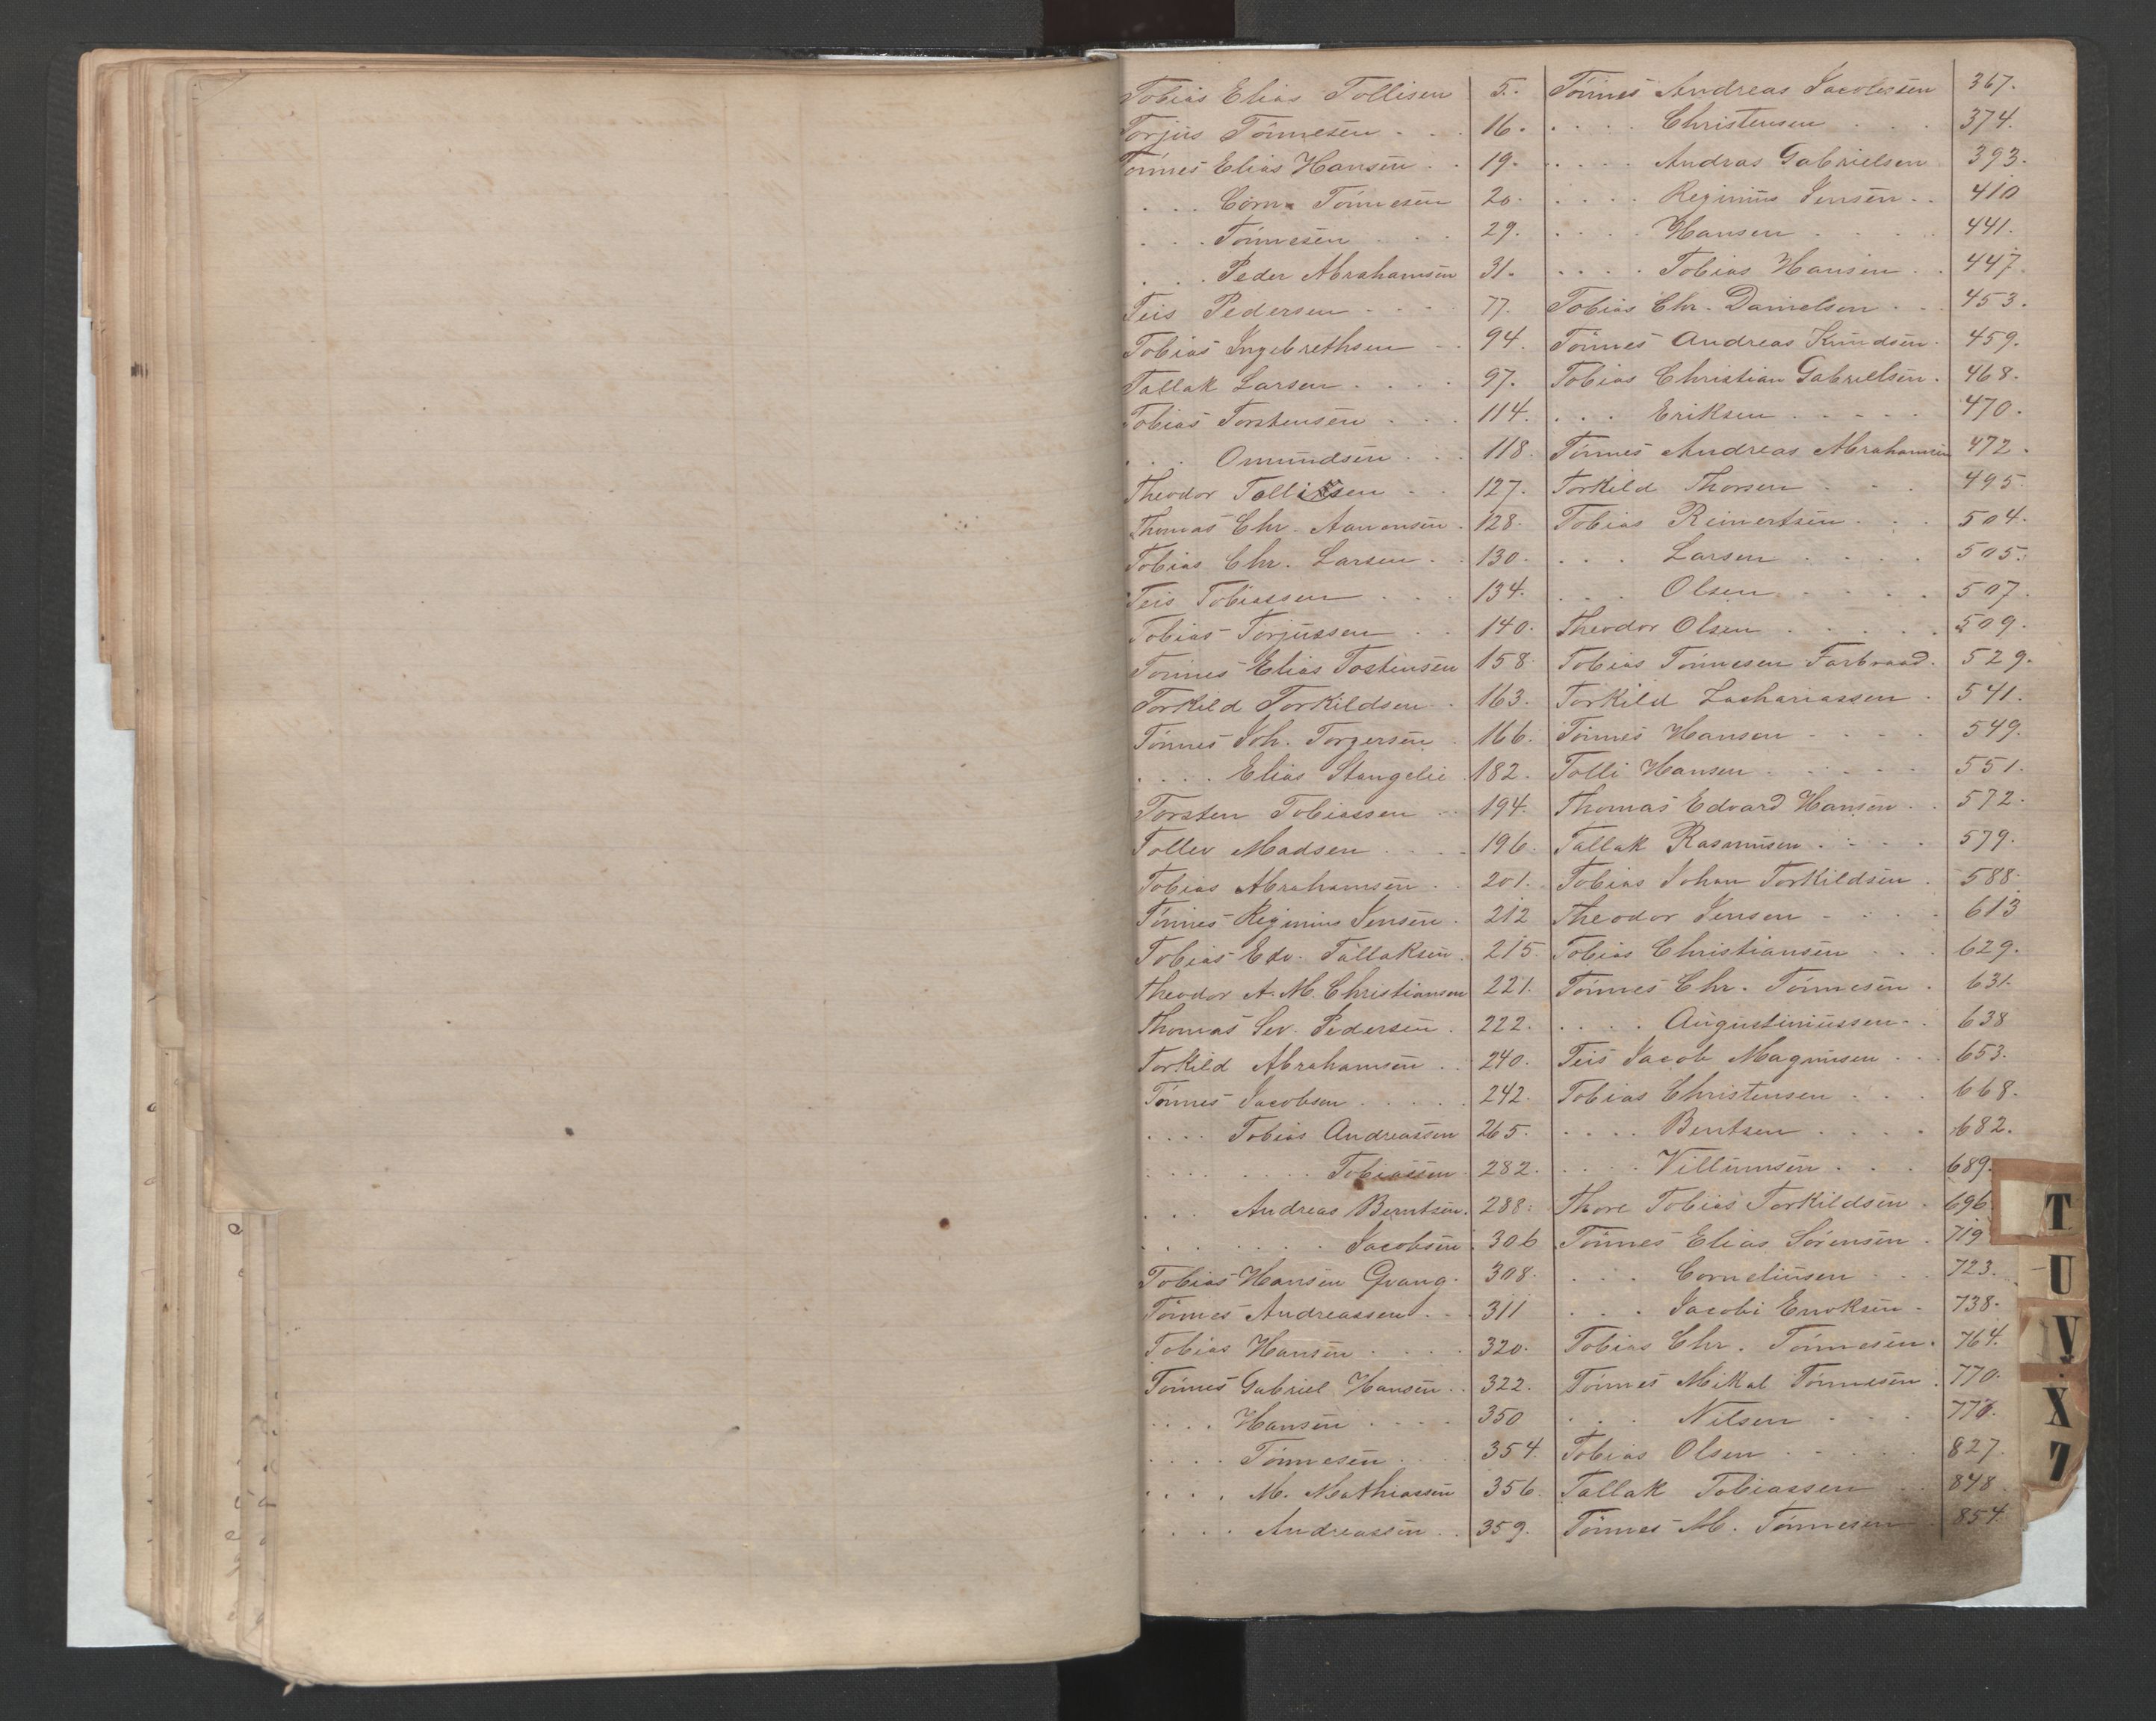 Tobias Elias Tollisen 5.
Torjus Tönnesen . . . 16.
Tönnes Elias Hansen . . 19.
. . . Corn. Tönnesen 20.
. . . Tönnesen . . . 29.
. . . Peder Abrahamsen 31.
Teis Pedersen . . . . 77.
Tobias Ingebrethsen . . 94.
Tallak Larsen . . . . 97.
Tobias Torstensen . . . 114.
. . . Omundsen . . . 118.
Theodor Tollissen . . 127.
Thomas Chr. Aanensen . 128.
Tobias Chr. Larsen . . 130.
Teis Tobiassen . . . 134.
Tobias Torjussen . . 140.
Tönnes Elias Tostensen 158
Torkild Torkildsen . . 163.
Tönnes Joh. Torgersen . 166.
. . . . Elias Stangelie 182.
Torsten Tobiassen . . 194.
Tollev Madsen . . . . 196.
Tobias Abrahamsen . . 201.
Tönnes Reginius Jensen . 212
Tobias Edv. Tallaksen . 215
Theodor A. M. Christiansen 221.
Thomas Sev. Pedersen . 222.
Torkild Abrahamsen . . 240.
Tönnes Jacobsen . . . . . 242.
. . . . Tobias Andreassen 265.
. . . . . . . Tobiassen . 282.
. . . Andreas Berntsen . 288.
. . . . . . . Jacobsen . 306
Tobias Hansen Qvang . 308.
Tönnes Andreassen . . . 311
Tobias Hansen . . . . 320.
Tönnes Gabriel Hansen . . 322.
. . . . Hansen . . . . 350
. . . . Tönnesen . . . 354.
. . . . M. Mathiassen 356.
. . . . Andreassen . . 359.
Tönnes Andreas Jacobsen 367.
. . . . Christensen . . . 374.
. . . . Andras Gabrielsen 393.
. . . . Reginius Jensen . . 410
. . . . Hansen . . . . 441.
. . . . Tobias Hansen . . 447.
Tobias Chr. Danielsen . . . 453.
Tönnes Andreas Knudsen . 459.
Tobias Christian Gabrielsen . 468.
. . . Eriksen . . . . . 470.
Tönnes Andreas Abrahamsen 472.
Torkild Thorsen . . . 495.
Tobias Reinertsen . . . 504.
. . . Larsen . . . . 505.
. . . Olsen . . . . . 507.
Theodor Olsen . . . . . 509.
Tobias Tönnesen Farbraad . 529.
Torkild Zachariassen . 541.
Tönnes Hansen . . . . 549.
Tolli Hansen . . . . . 551.
Thomas Edvard Hansen . . 572.
Tallak Rasmusen . . . . 579.
Tobias Johan Torkildsen . 588.
Theodor Jensen . . . . 613
Tobias Christiansen . . . 629.
Tönnes Chr. Tönnesen . 631.
. . . . Augustinussen . . 638
Teis Jacob Magnusen . . . 653.
Tobias Christensen . . . 668.
. . . . Bentsen . . . . 682.
. . . . Villumsen . . . 689.
Thore Tobias Torkildsen . 696
Tönnes Elias Sörensen . 719
. . . Corneliusen . . 723.
. . . Jacobi Enoksen . 738.
Tobias Chr. Tönnesen . 764.
Tönnes Mikal Tönnesen . 770.
. . . Nilsen . . . 776.
Tobias Olsen . . . . . 827.
Tallak Tobiassen . . 848.
Tönnes M. Tönnesen . 854.
T
U
V
X
Z